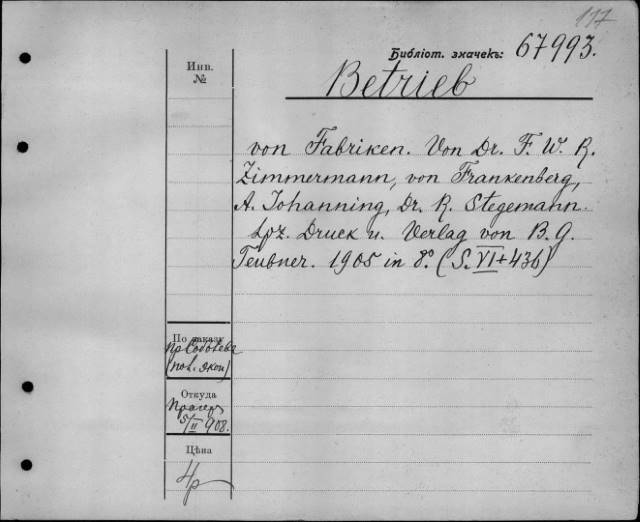 117
Библіот. значекъ: 67993.
Инв.
№
Betrieb
von Fabriken. Von Dr. F. W. R.
Zimmermann, von Frankenberg,
A. Johanning, Dr. R. Stegemann.
Lpz. Druck u. Verlag von B. G.
Teubner. 1905 in 8º. (S. VI+436)
По заказу
(пол. экон)
Откуда
5/II 908.
Цѣна
4р